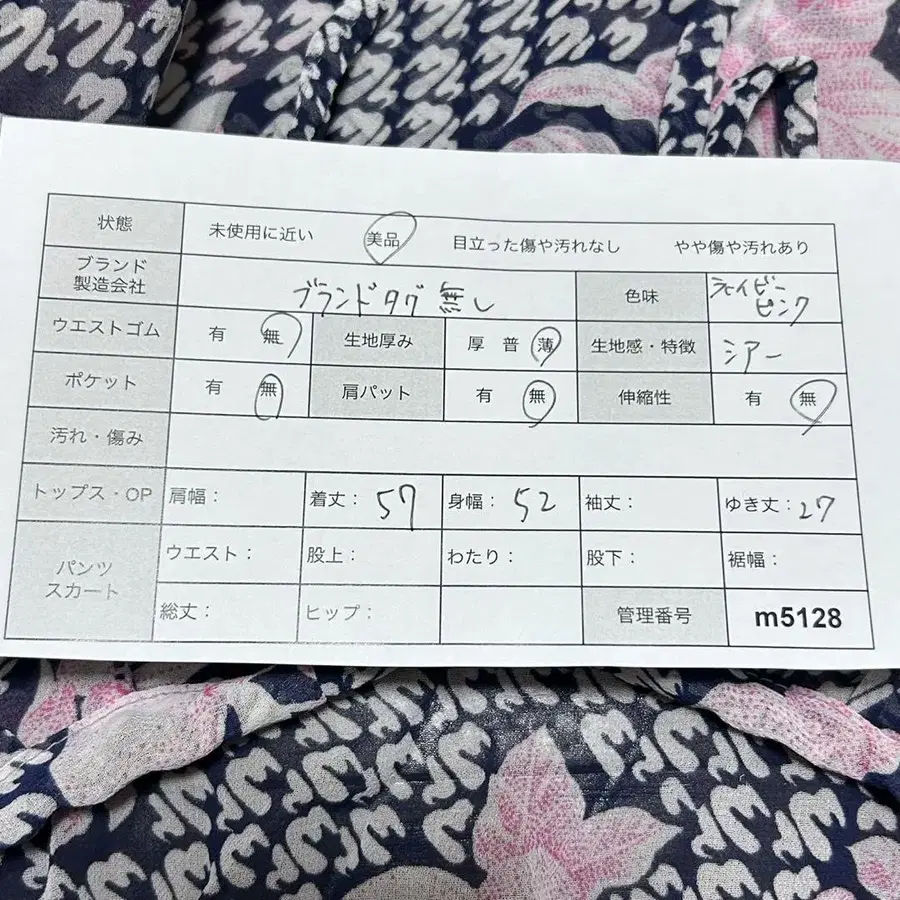 状態 未使用に近い 美品 目立った傷や汚れなし やや傷や汚れあり
ブランド
製造会社 ブランドタグ無し 色味 ネイビー
ピンク
ウエストゴム 有 無 生地厚み 厚 普 薄 生地感・特徴 シアー
ポケット 有 無 肩パット 有 無 伸縮性 有 無
汚れ・傷み
トップス・OP 肩幅: 着丈: 57 身幅: 52 袖丈: ゆき丈: 27
パンツ
スカート ウエスト: 股上: わたり: 股下: 裾幅:
総丈: ヒップ: 管理番号 m5128